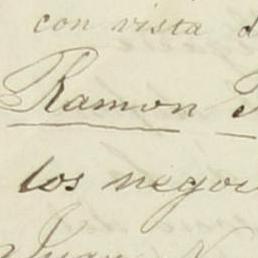 con vista d
Ramon
los nego
Juan